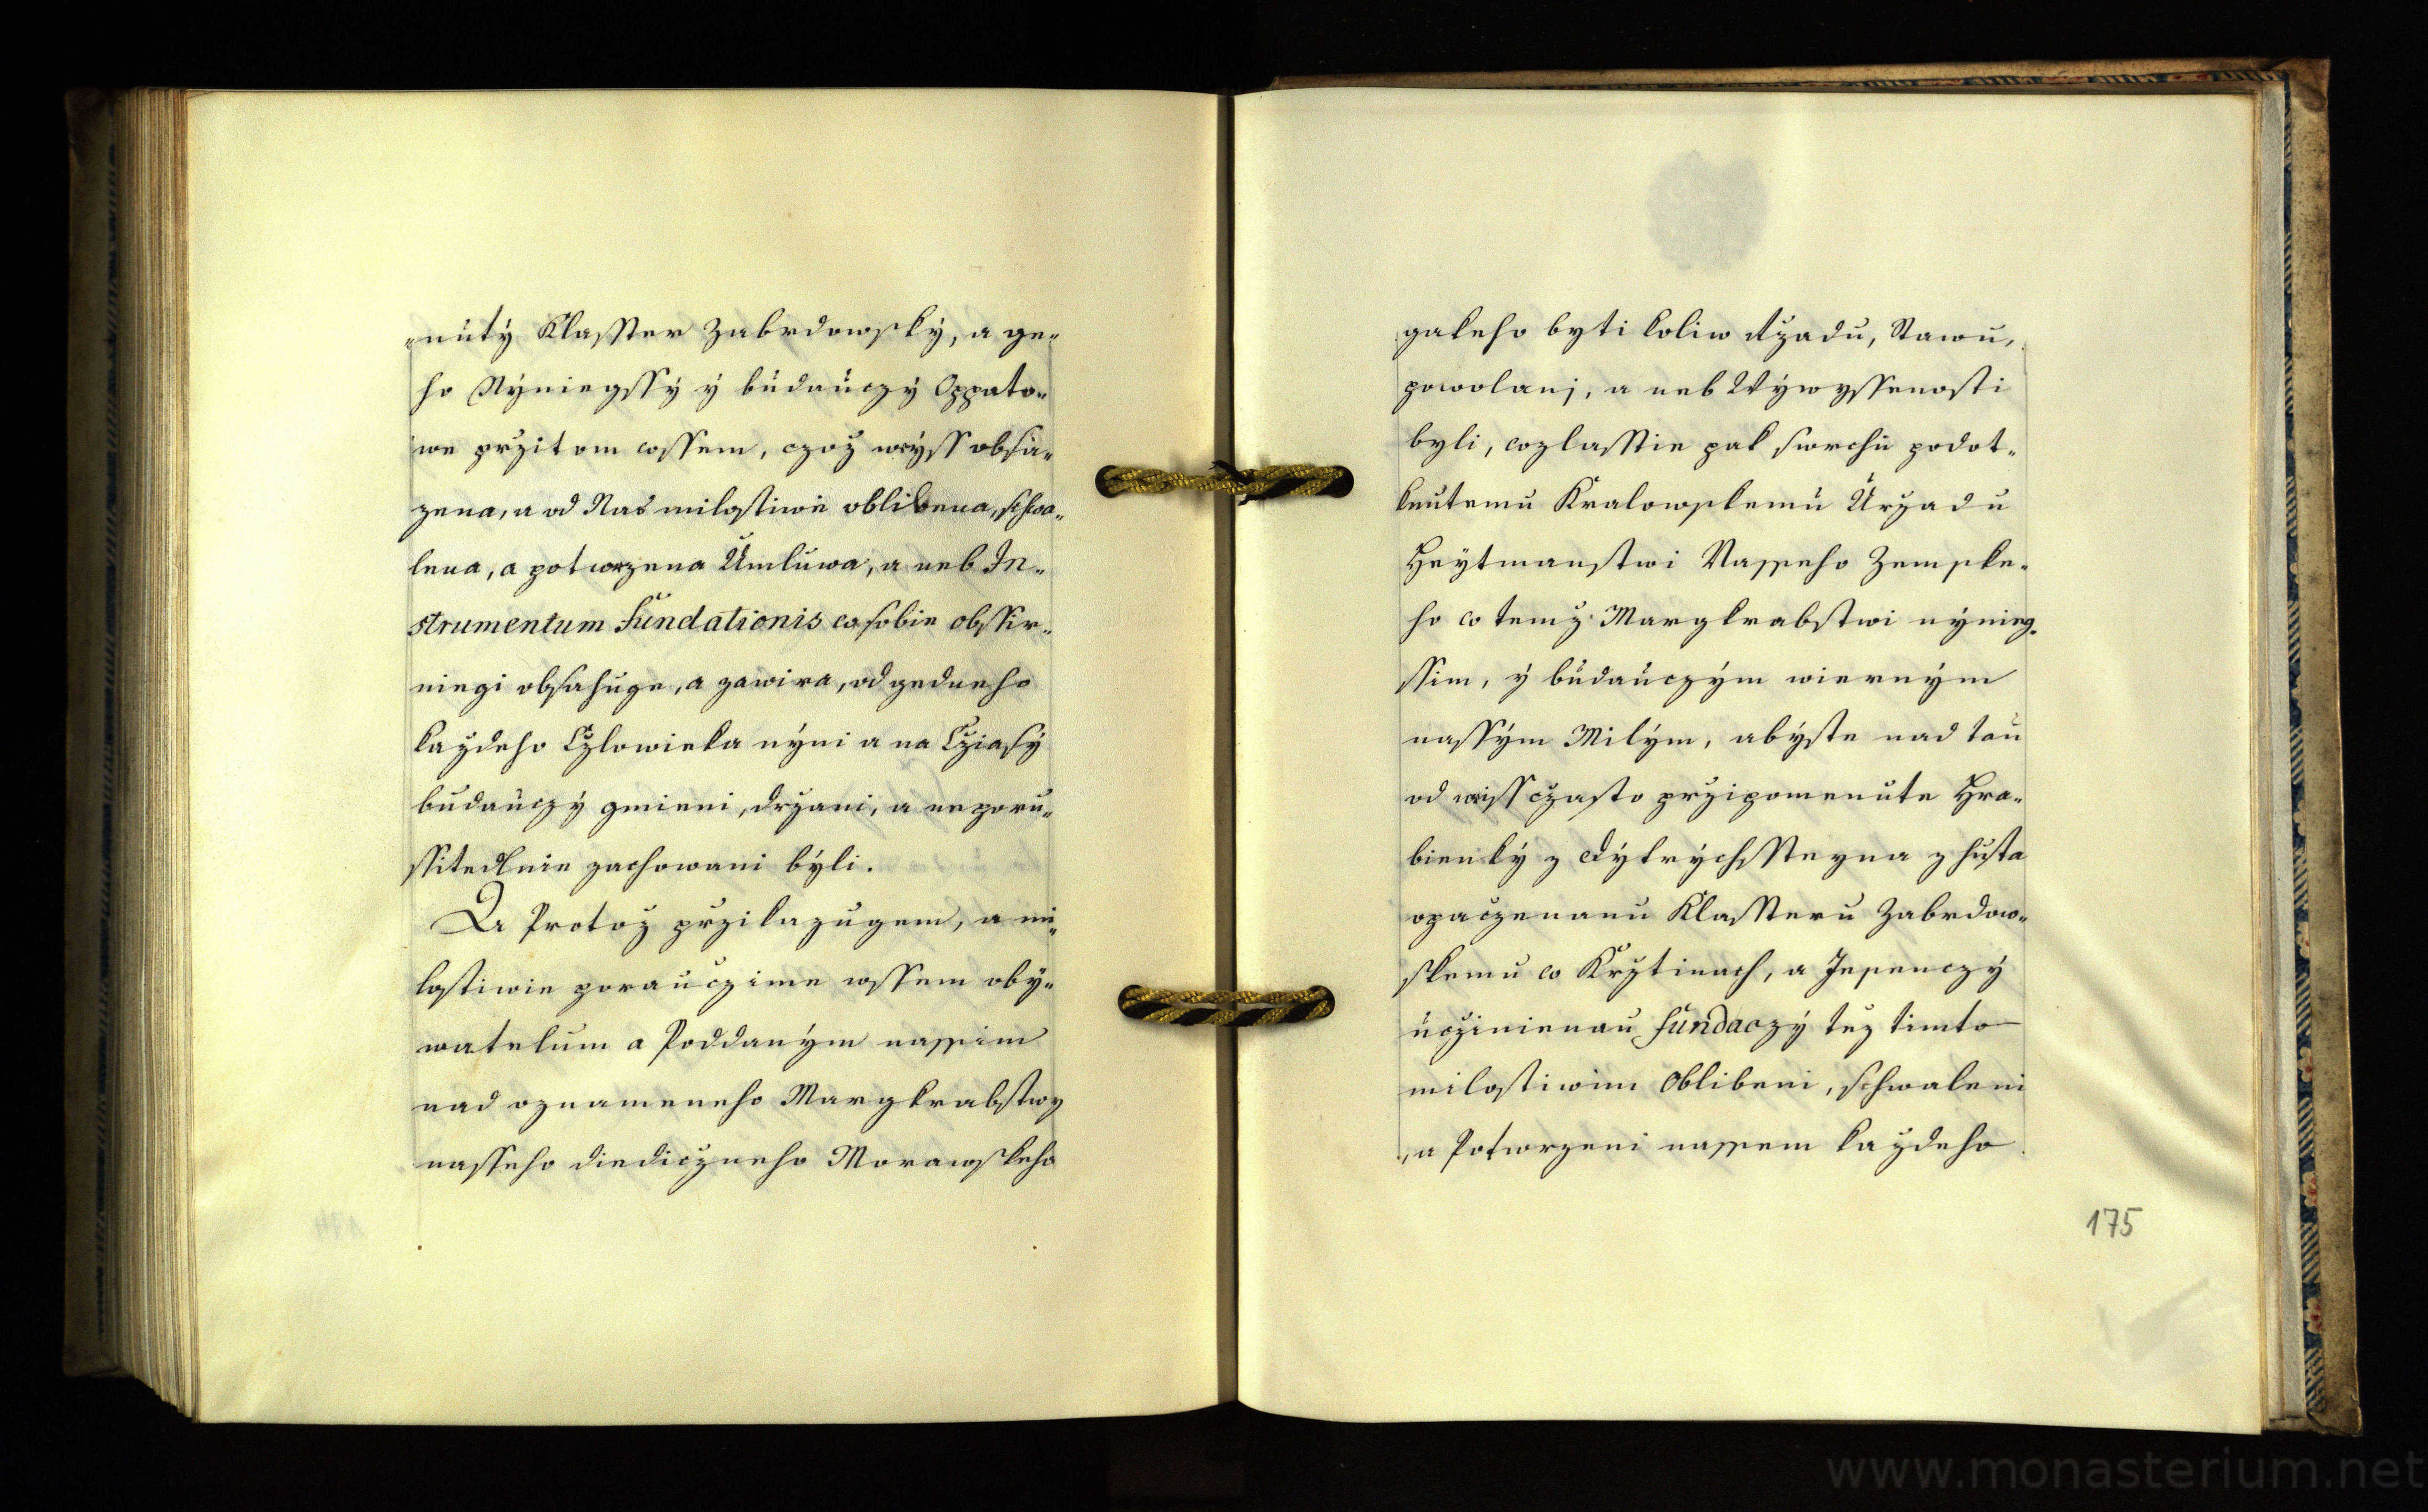 nutý Klasster Zabrdowský, a ge-
ho Nýniegssý ý budauczý Oppato-
we przitom wssem, czož weýss obsa-
zena, a od Nas milostiwie oblibena, schwa-
lena, a potwrzena Umluwa, a neb In-
strumentum Fundationis w sobie obssir-
niegi obsahuge, a zawira, od gedneho
každeho Cžlowieka nýni a na Cžiasý
budauczý gmieni, držani, a neporu-
ssitedlnie zachowani býli.
A Protož przikazugem, a mi-
lostiwie porauczime wssem obý-
watelum a Poddaným nassim
nad oznameneho Margkrabstwy
nasseho diedicżneho Morawskeho
gakeho byti koliw rżadu, Stawu,
powolani, a neb Wýwyssenosti
byli, wzlasstie pak swrchu podot-
knutemu Kralowskemu Urzadu
Heýtmanstwi Nasseho Zemske-
ho w temž Margkrabstwi nýnieg-
ssim, ý budauczým wierným
nassým Milým, abýste nad tau
od weiss cżasto przipomenute Hra-
bienký z Dýtrýchssteyna z husta
opacżenanu Klassteru Zabrdow-
skemu w Krżtinach, a Jesenczý
ucżinienau fundaczý tuz timto
milostiwim Oblibeni, schwaleni
a Potwrzeni nassem każdeho
175
www.monasterium.net